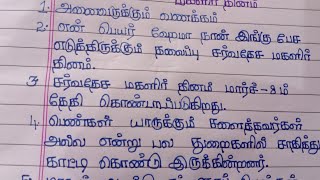 மகளிர் தினம்
1. அனைவருக்கும் வணக்கம்
2. என் பெயர் ஹேமா நான் இங்கு பேச
எடுத்திருக்கும் தலைப்பு சர்வதேச மகளிர்
தினம்.
3 சர்வதேச மகளிர் தினம் மார்ச்-8ம்
தேதி கொண்டாடப்படுகிறது.
4. பெண்கள் யாருக்கும் சளைத்தவர்கள்
அல்ல என்று பல துறைகளில் சாதித்து
காட்டி கொண்டு இருக்கின்றனர்.